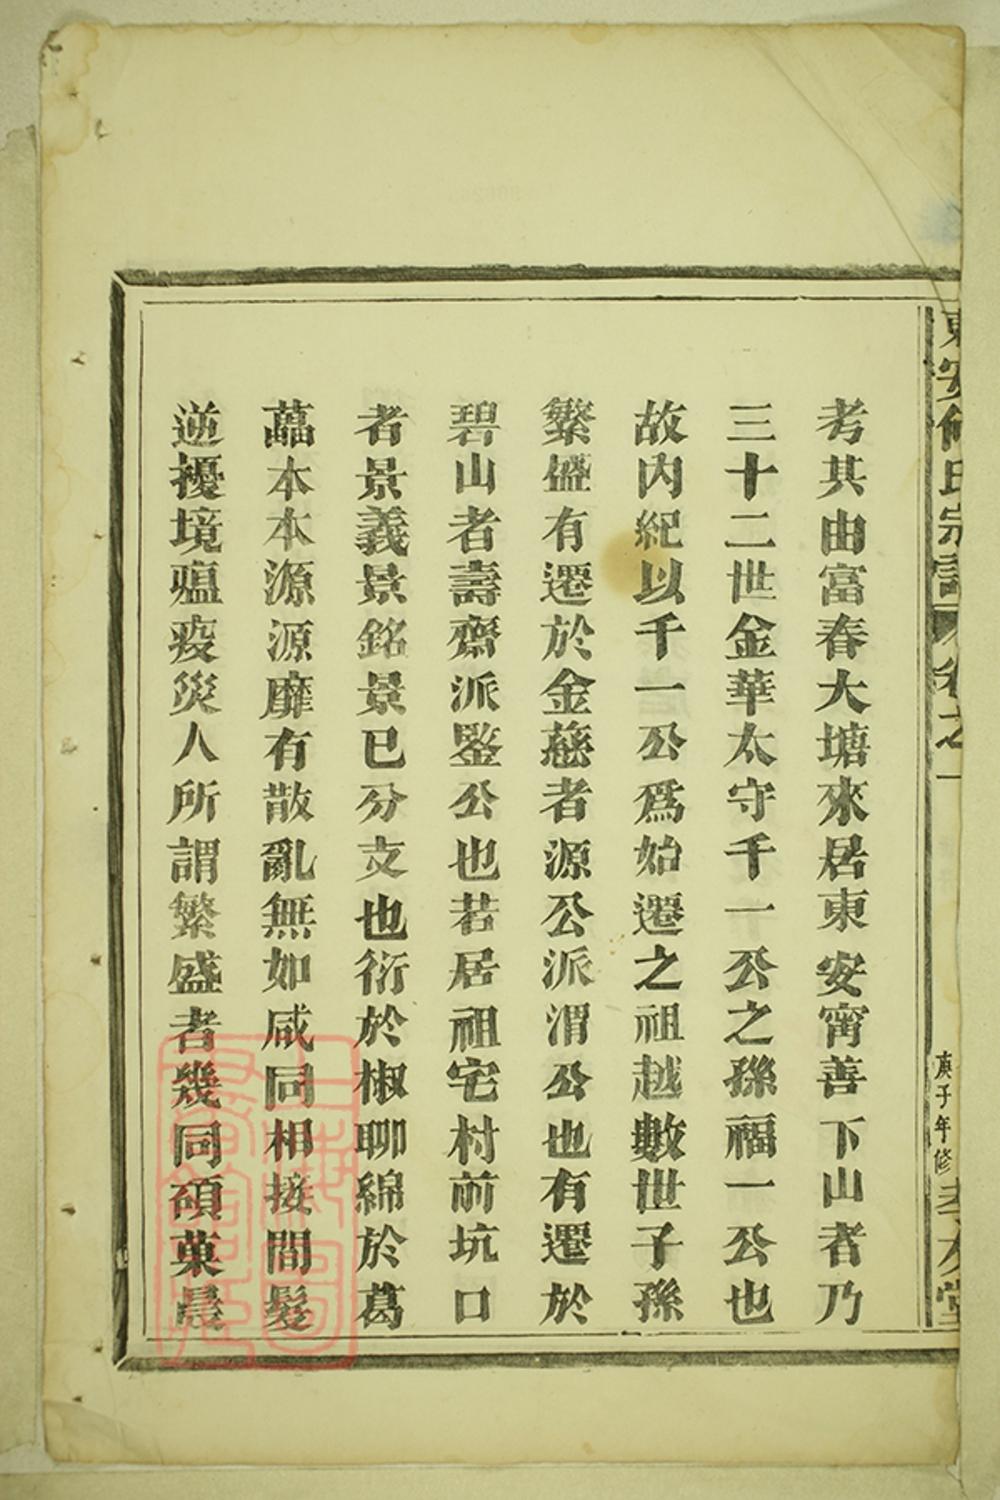 東安何氏宗譜
卷之一
庚子年修
考其由富春大塘來居東安甯善下山者乃
三十二世金華太守千一公之孫福一公也
故内紀以千一公爲始遷之祖越數世子孫
繁盛有遷於金慈者源公派渭公也有遷於
碧山者壽齋派鑒公也若居祖宅村前坑口
者景義景銘景已分支也衍於椒聊綿於葛
藟本本源源靡有散亂無如咸同相接間髮
逆擾境瘟疫災人所謂繁盛者幾同碩菓晨